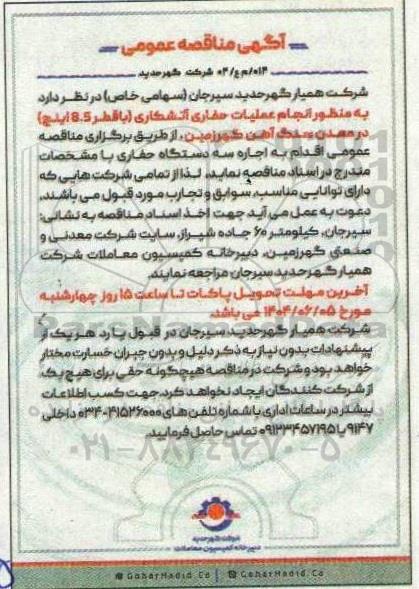 آگهی مناقصه عمومی
۰۱۴/م ع/۰۴ شرکت گهرحدید
شرکت همیار گهرحدید سیرجان (سهامی خاص) در نظر دارد
به منظور انجام عملیات حفاری آتشکاری (با قطر 8.5 اینچ)
در معدن سنگ آهن گهرزمین، از طریق برگزاری مناقصه
عمومی اقدام به اجاره سه دستگاه حفاری با مشخصات
مندرج در اسناد مناقصه نماید، لذا از تمامی شرکت هایی که
دارای توانایی مناسب، سوابق و تجارب مورد قبول می باشند،
دعوت به عمل می آید جهت اخذ اسناد مناقصه به نشانی:
سیرجان، کیلومتر ۶۰ جاده شیراز، سایت شرکت معدنی و
صنعتی گهرزمین، دبیرخانه کمیسیون معاملات شرکت
همیار گهرحدید سیرجان مراجعه نمایند.
آخرین مهلت تحویل پاکات تا ساعت ۱۵ روز چهارشنبه
مورخ ۱۴۰۴/۰۶/۰۵ می باشد.
شرکت همیار گهرحدید سیرجان در قبول یا رد هر یک از
پیشنهادات بدون نیاز به ذکر دلیل و بدون جبران خسارت مختار
خواهد بود و شرکت در مناقصه هیچگونه حقی برای هیچ یک
از شرکت کنندگان ایجاد نخواهد کرد. جهت کسب اطلاعات
بیشتر در ساعات اداری با شماره تلفن های ۰۳۴۰۴۱۵۲۶۰۰۰ داخلی
۹۱۴۷ یا ۰۹۱۳۳۴۵۷۱۹۵ تماس حاصل فرمایید.
۰۲۱-۸۸۳۴۹۶۷۰-۵
شرکت گهرحدید
دبیرخانه کمیسیون معاملات
GoharHadid.Co | GoharHadid.Co